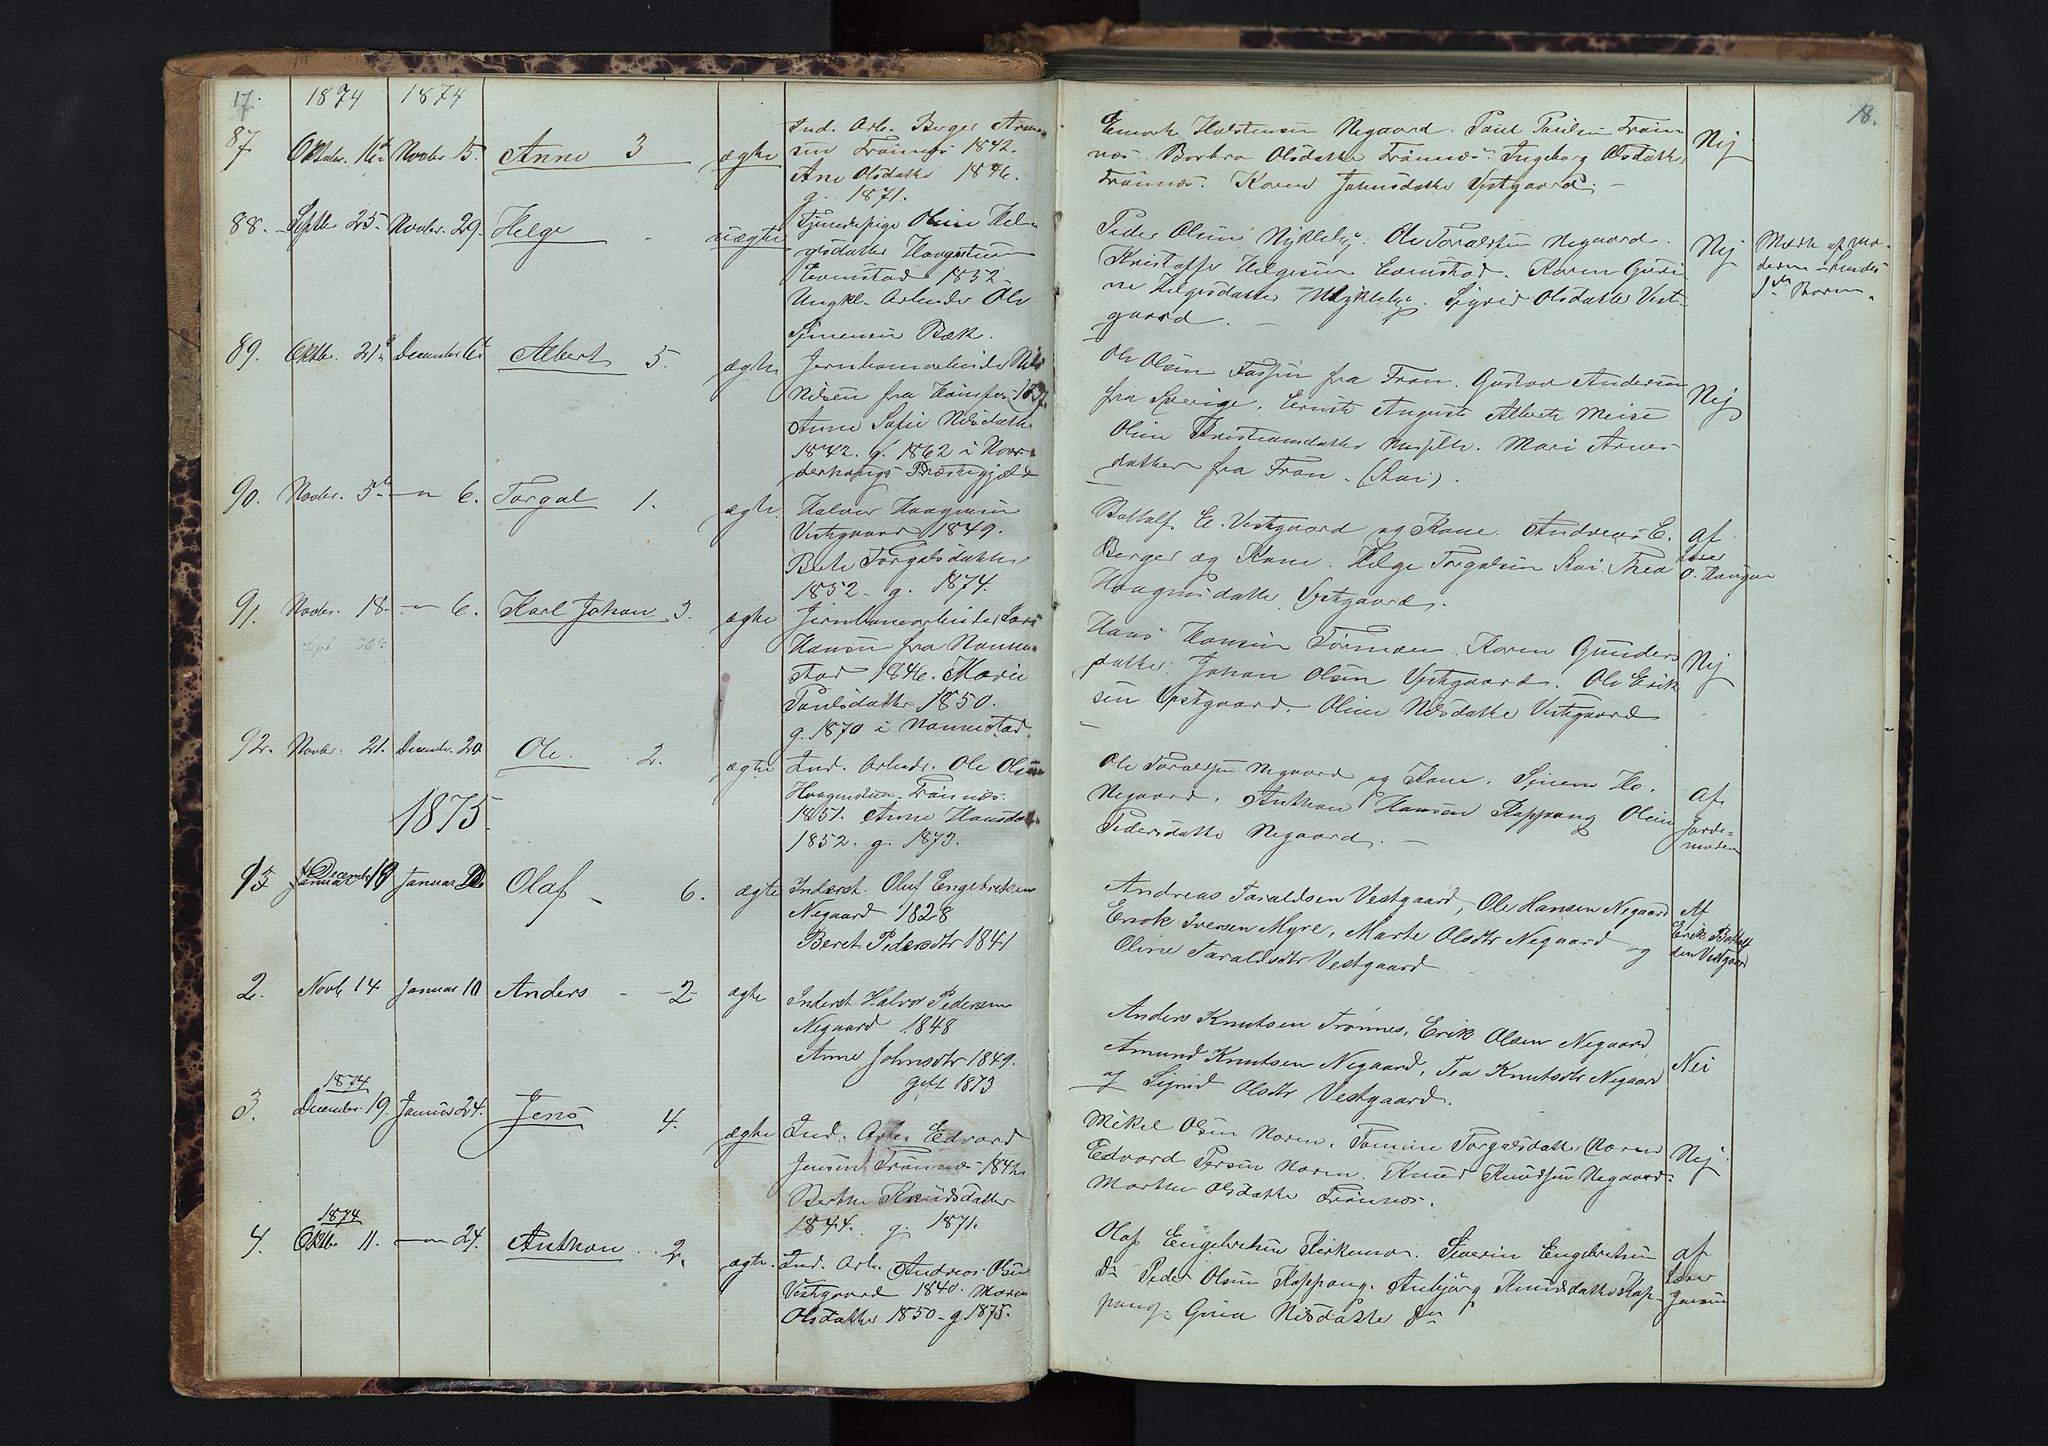 17.
1874 1874
87 Oktober 16de Novbr. 15. Anne 3 ægte
Ind. Arb. Berger Arne-
sen Trønnes 1842.
Ane Olsdatter 1846.
g. 1871.
88. Septbr 25. Novbr. 29. Helge uægte
Tjenestepige Oline Hel-
gesdatter Haagensen
Evenstad 1852.
Ungkl. Arbeider Ole
Simensen Bæk.
89. Oktbr. 21de December 6te Albert 5. ægte
Jernbanearbeider Nils
Nilsen fra 1837.
Anne Sofie Nilsdatter
1842. g. 1862 i Nor-
derhougs Præstegjeld
90. Novbr. 5te — " 6. Torgal 1. ægte.
Halvor Haagensen
Vestgaard 1849.
Berte Torgalsdatter
1852. g. 1874.
91. Novbr. 18. — " 6. Karl Johan 3. ægte
Jernbanearbeider Lars
Hansen fra Nannes-
stad 1846. Marie
Paulsdatter 1850.
g. 1870 i Nannestad
92. Novbr. 21. Decembr. 20. Ole 2. ægte
Ind. Arbeidr. Ole Olsen
Haagenstuen Trønnes
1851. Anne Hansdat.
1852. g. 1873.
1875.
December 19 Januar Olaf 6. ægte
Inderst. Oluf Engebretsen
Negaard 1828
Beret Pedersdtr 1841
2. Novb 14 Januar 10 Anders 2 ægte
Inderst. Halvor Pedersen
Negaard 1848
Anne Johnsdtr 1849.
gift 1873
1874
3. December 19. Januar 24. Jens 4. ægte
Ind. Arb. Edvard
Jensen Trønnes 1842
Berthe Knudsdatter
1844. g. 1871.
1874
4. Oktbr. 11. — " 24. Anthon 2. ægte.
Ind. Arb. Andreas Olsen
Vestgaard 1840. Maren
Olsdatter 1850 - g 1875.
18.
Halstensen Negaard. Paul Paulsen Trøn-
nes. Barbro Olsdatter Trønnes. Ingeborg Olsdatter
Trønnes. Karen Johnsdatter Vestgaard.
Nej
Peder Olsen Nykleby. Ole Taraldsen Negaard.
Kristoffer Helgesen Evenstad. Karen Guri-
ne Helgesdatter Mykleby. Sigrid Olsdatter Vest-
gaard.
Nej
Mærke af Mo-
deren
Barn.
Ole Olsen Fossen fra Fron. Gustav Andersen
fra Sverige. Ernst August Albert Meise
Oline Kristiansdatter. Mari Arnes-
datter fra Fron. (Rai).
Nej
Battolf E. Vestgaard og Kone. Andreas E.
Berger og Kone. Helge Torgalsen Rai. Thea
Haagensdatter Vestgaard.
af
O. Haugen
Hans Hansen. Karen Gunders-
datter. Johan Olsen Vestgaard. Ole Erik-
sen Vestgaard. Oline Nilsdatter Vestgaard
Nej
Ole Taraldsen Negaard og Kone. Simen H.
Negaard. Anthon Hansen Koppang Oline
Pedersdatter Negaard.
af
Jorde-
moder
Andreas Taraldsen Vestgaard, Ole Hansen Negaard
Erick Iversen Myre, Marte Olsdtr Negaard og
Oline Taraldsdtr Vestgaard
Af
Erik Battolf-
sen Vestgaard
Anders Knutsen Trønnes, Erik Olsen Negaard,
Amund Knutsen Negaard, Tea Knutsdtr Negaard
og Sigrid Olsdtr Vestgaard.
Nei
Mikel Olsen Noren. Torgalsdatter Noren
Edvard Persen Noren. Knud Knudsen Negaard.
Marthe Olsdatter Trønnes.
Nej
Olaf Engebretsen Kirkemo. Severin Engebretsen
Do Peder Olsen Koppang. Anbjørg Knudsdatter Kop-
pang. Gina Nilsdatter Do
af
Lærer
Jensen